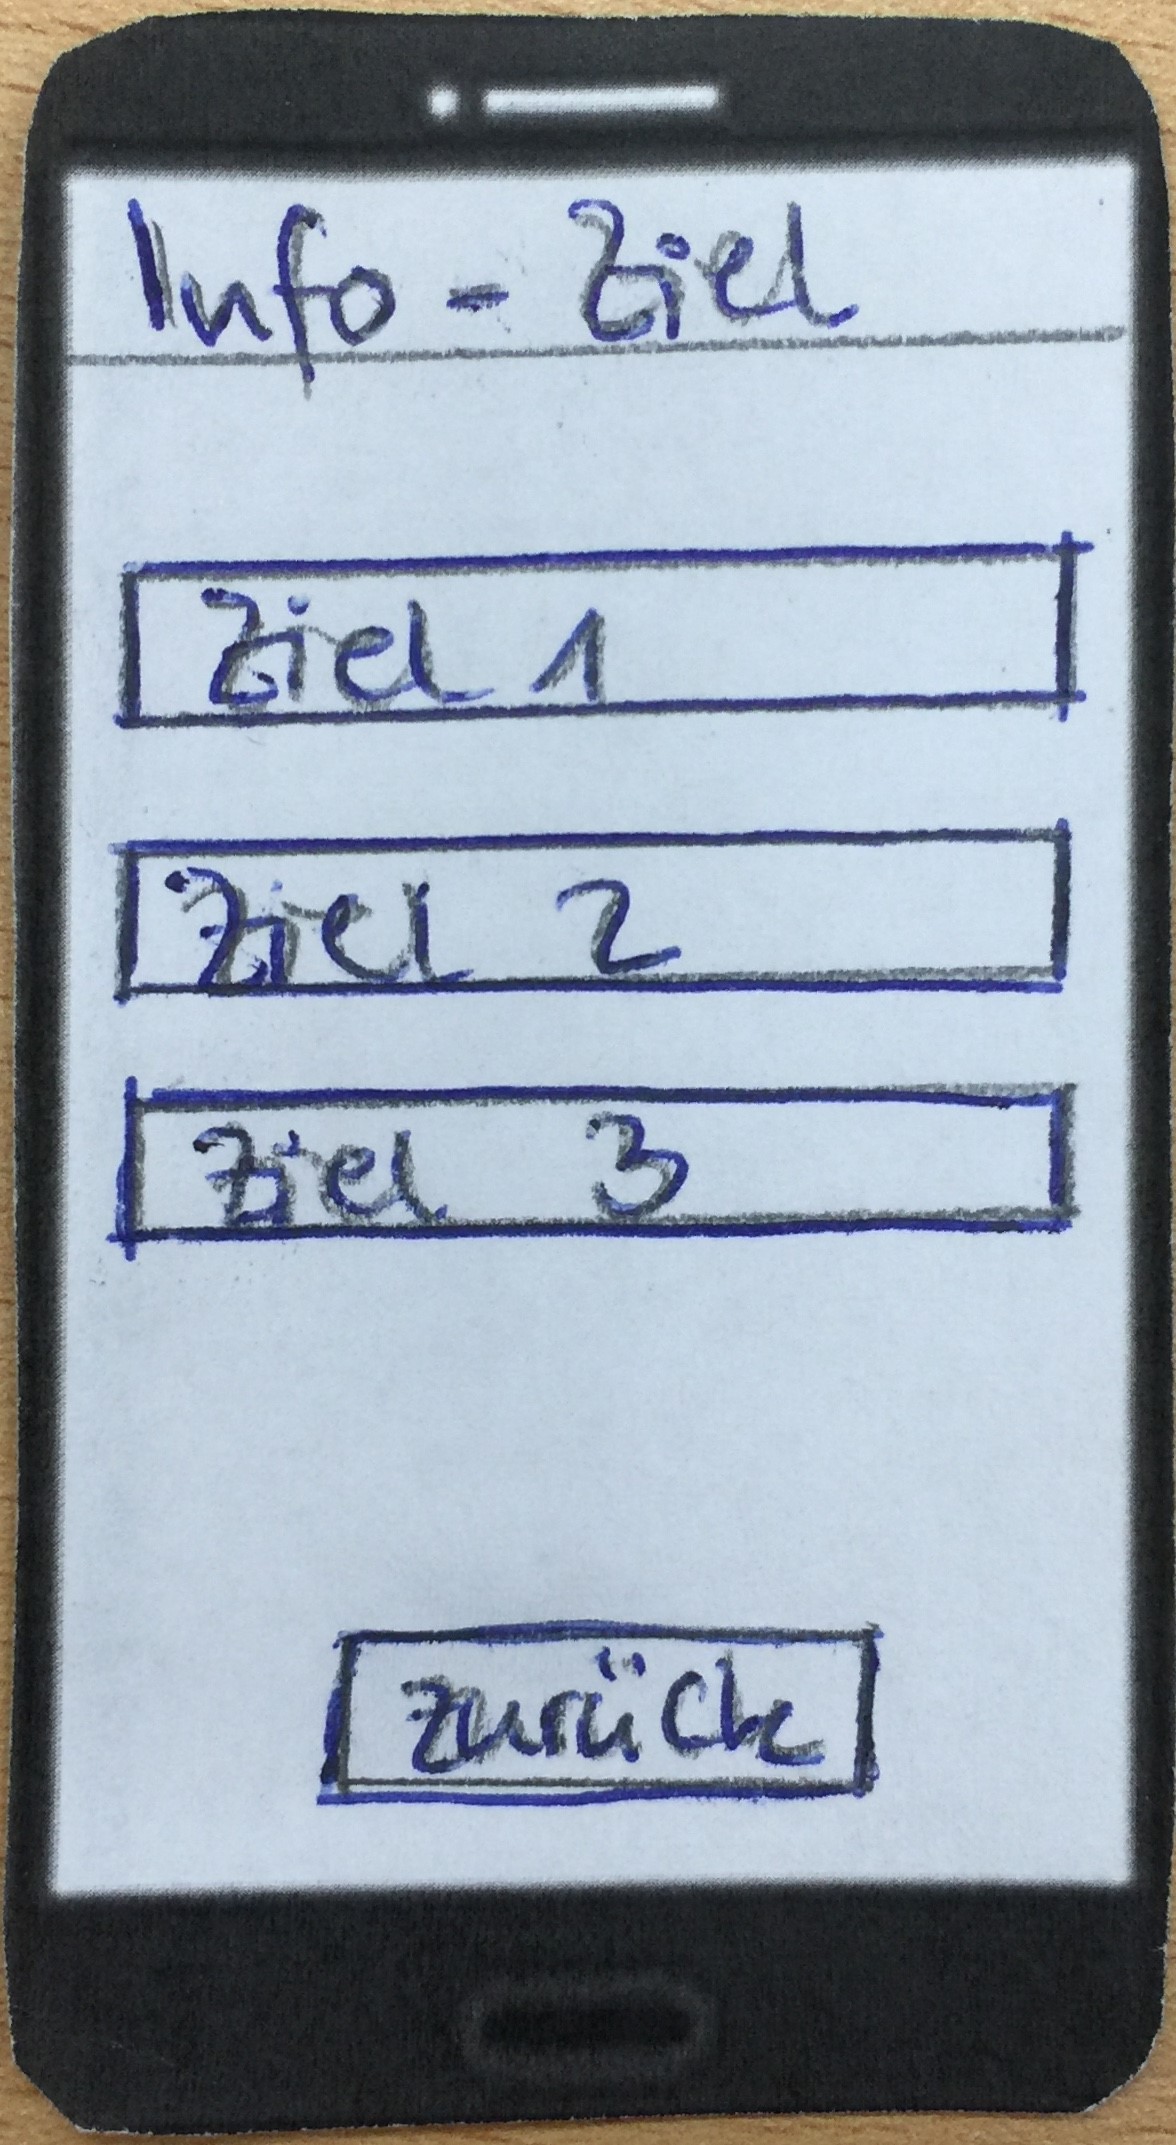 Info - Ziel
Ziel 1
Ziel 2
Ziel 3
zurück